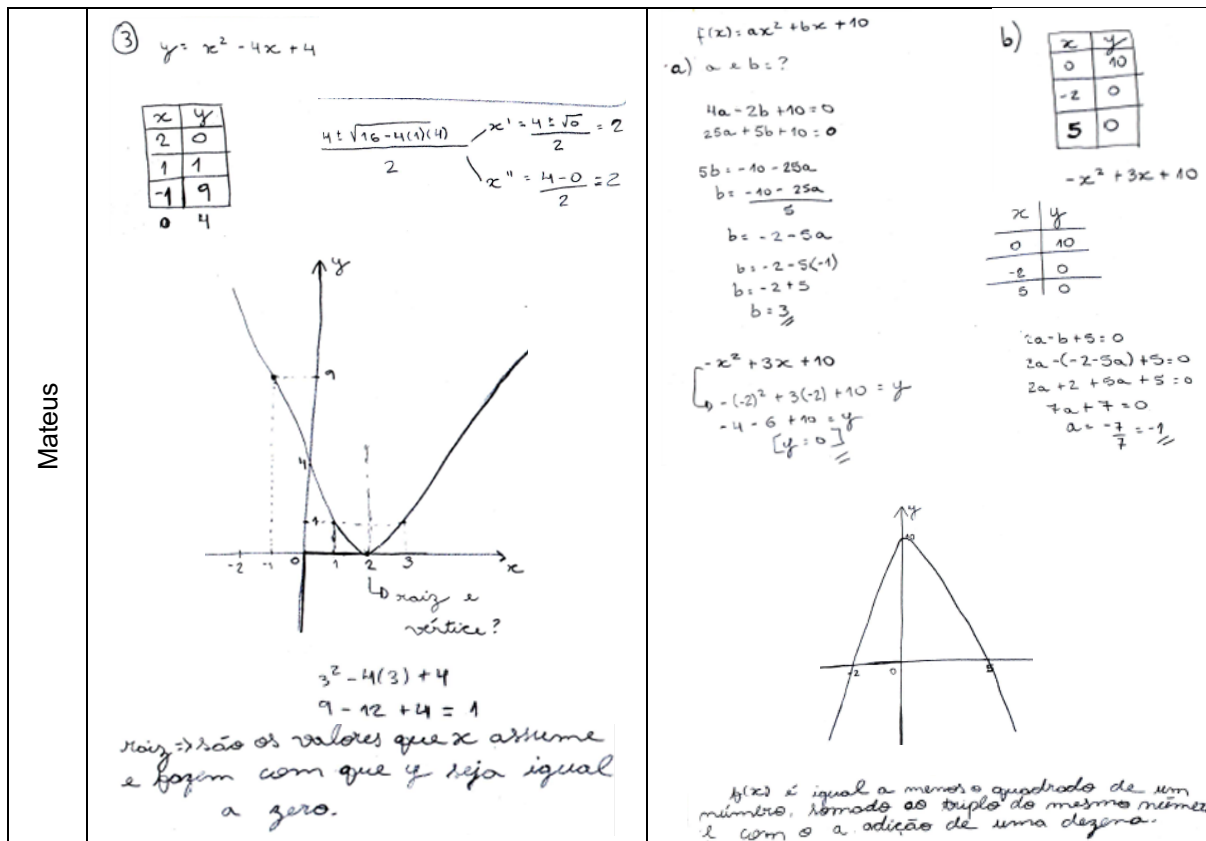 Mateus
③ y = x² - 4x + 4
x y
2 0
1 1
-1 9
0 4
4 ± √16 - 4(1)(4)
2
x' = 4 ± √0 = 2
2
x" = 4 - 0 = 2
2
y
9
4
1
-2 -1 0 1 2 3 x
raiz e
vértice?
3² - 4(3) + 4
9 - 12 + 4 = 1
raiz => são os valores que x assume
e fazem com que y seja igual
a zero.
f(x) = ax² + bx + 10
a) a e b = ?
4a - 2b + 10 = 0
25a + 5b + 10 = 0
5b = -10 - 25a
b = -10 - 25a
5
b = -2 - 5a
b = -2 - 5(-1)
b = -2 + 5
b = 3
-x² + 3x + 10
-(-2)² + 3(-2) + 10 = y
-4 - 6 + 10 = y
[y = 0]
b)
x y
0 10
-2 0
5 0
-x² + 3x + 10
x y
0 10
-2 0
5 0
2a - b + 5 = 0
2a - (-2 - 5a) + 5 = 0
2a + 2 + 5a + 5 = 0
7a + 7 = 0
a = -7 = -1
7
y
10
-2 0 5
f(x) é igual a menos o quadrado de um
número, somado ao triplo do mesmo númer
e com o a adição de uma dezena.